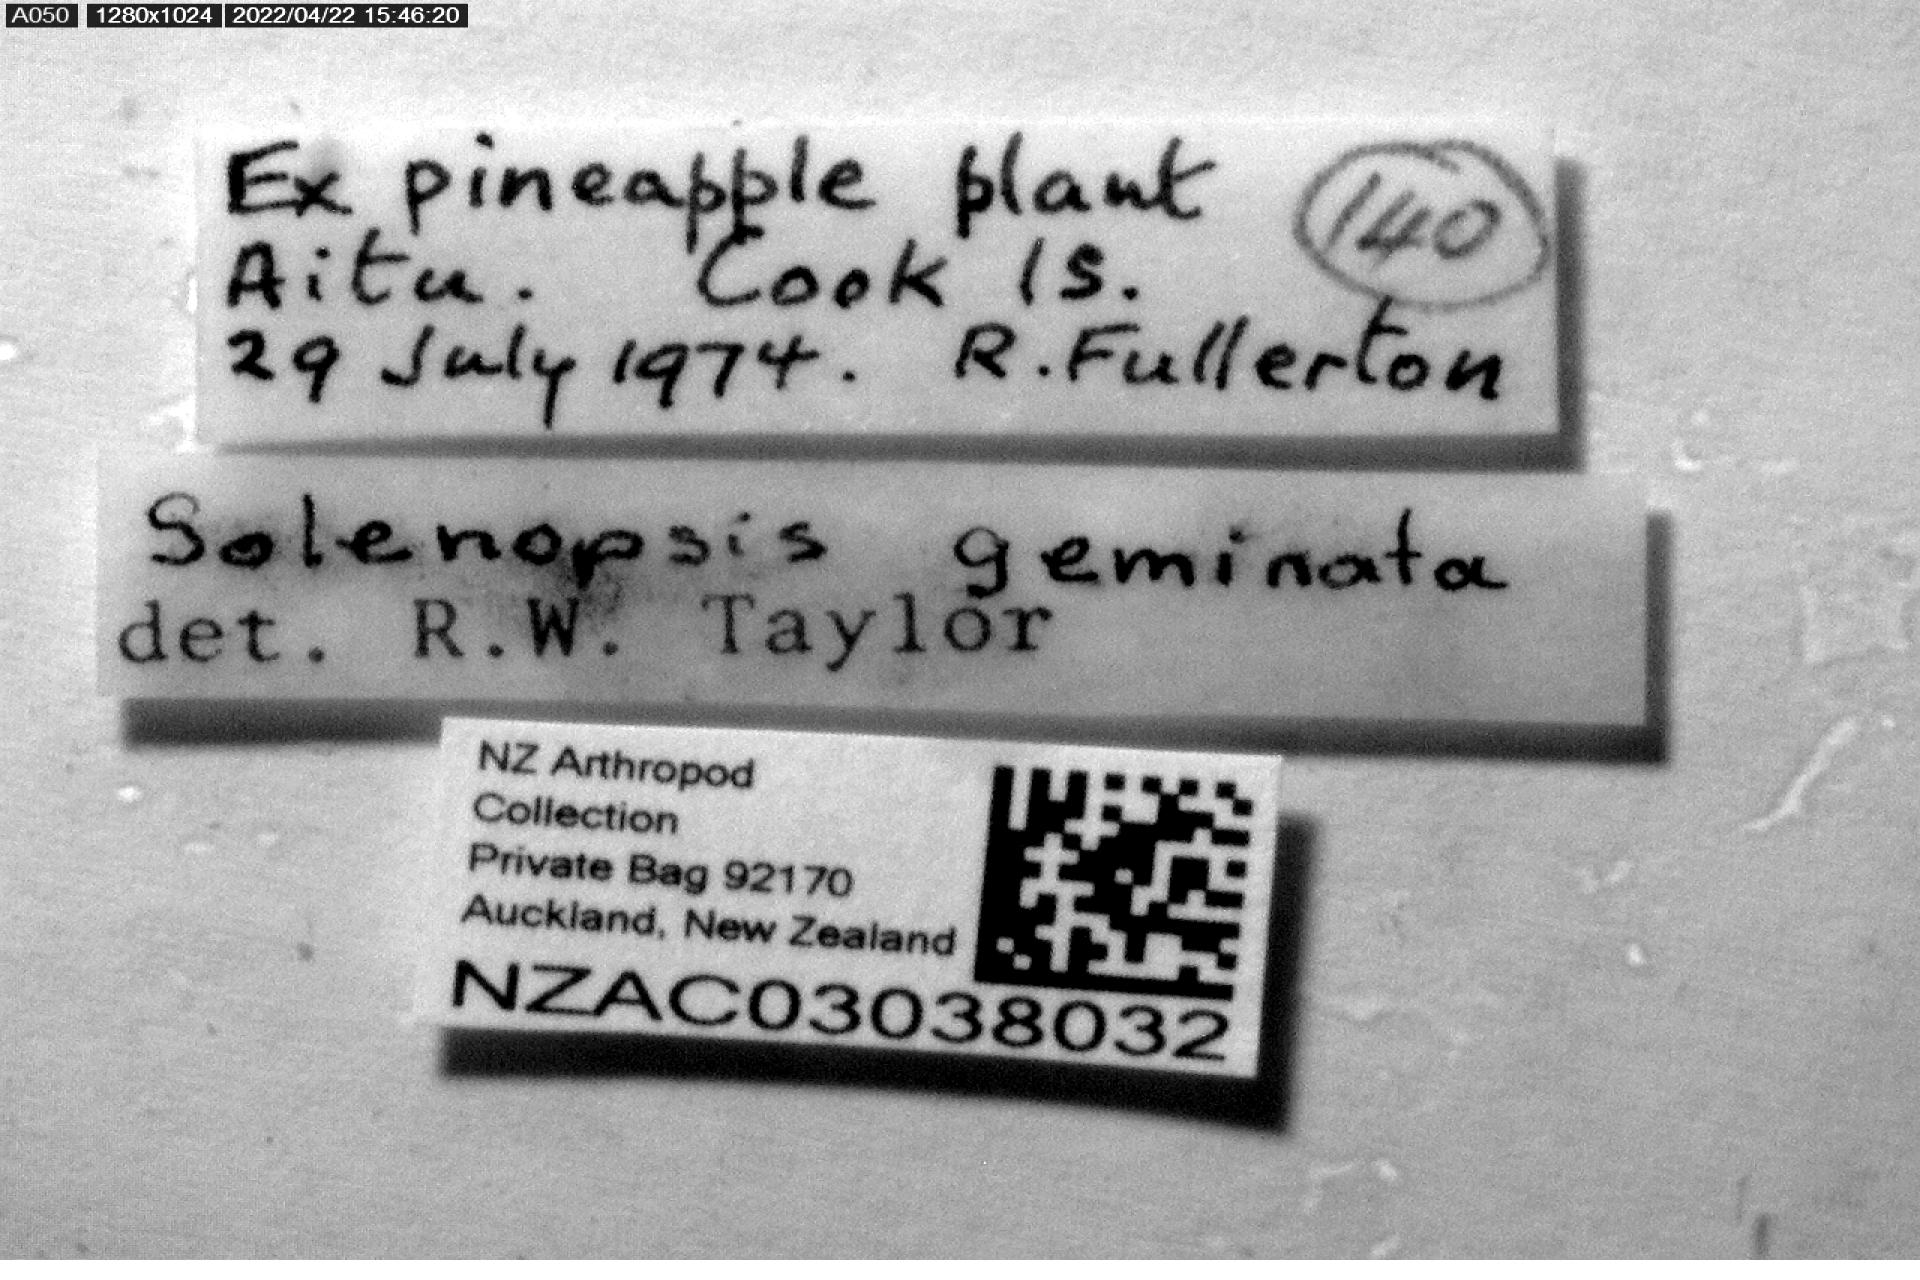 A050 1280x1024 2022/04/22 15:46:20
Ex pineapple plant 140
Aitu. Cook Is.
29 July 1974. R. Fullerton
Solenopsis geminata
det. R.W. Taylor
NZ Arthropod
Collection
Private Bag 92170
Auckland, New Zealand
NZAC03038032